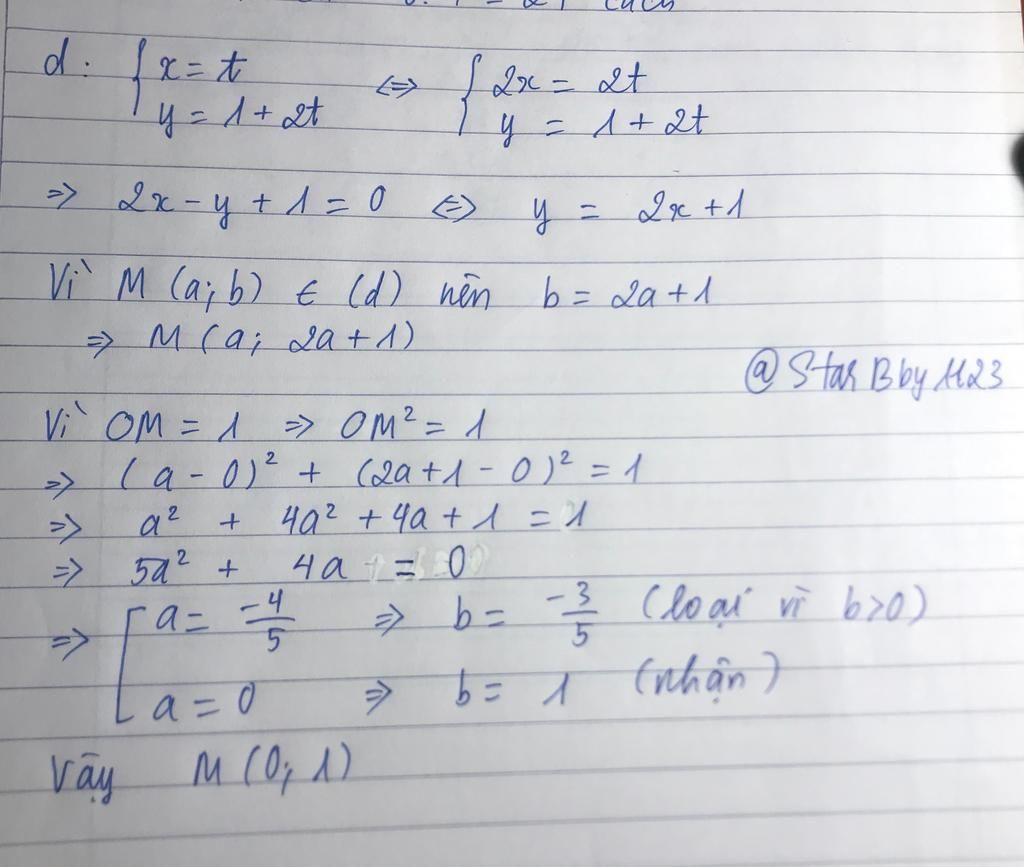 d: { x = t ⇔ { 2x = 2t
y = 1 + 2t y = 1 + 2t
⇒ 2x - y + 1 = 0 ⇔ y = 2x + 1
Vì M (a; b) ∈ (d) nên b = 2a + 1
⇒ M (a; 2a + 1)
@StarBby1123
Vì OM = 1 ⇒ OM² = 1
⇒ (a - 0)² + (2a + 1 - 0)² = 1
⇒ a² + 4a² + 4a + 1 = 1
⇒ 5a² + 4a = 0
⇒ [ a = -4/5 ⇒ b = -3/5 (loại vì b>0)
a = 0 ⇒ b = 1 (nhận)
Vậy M (0; 1)